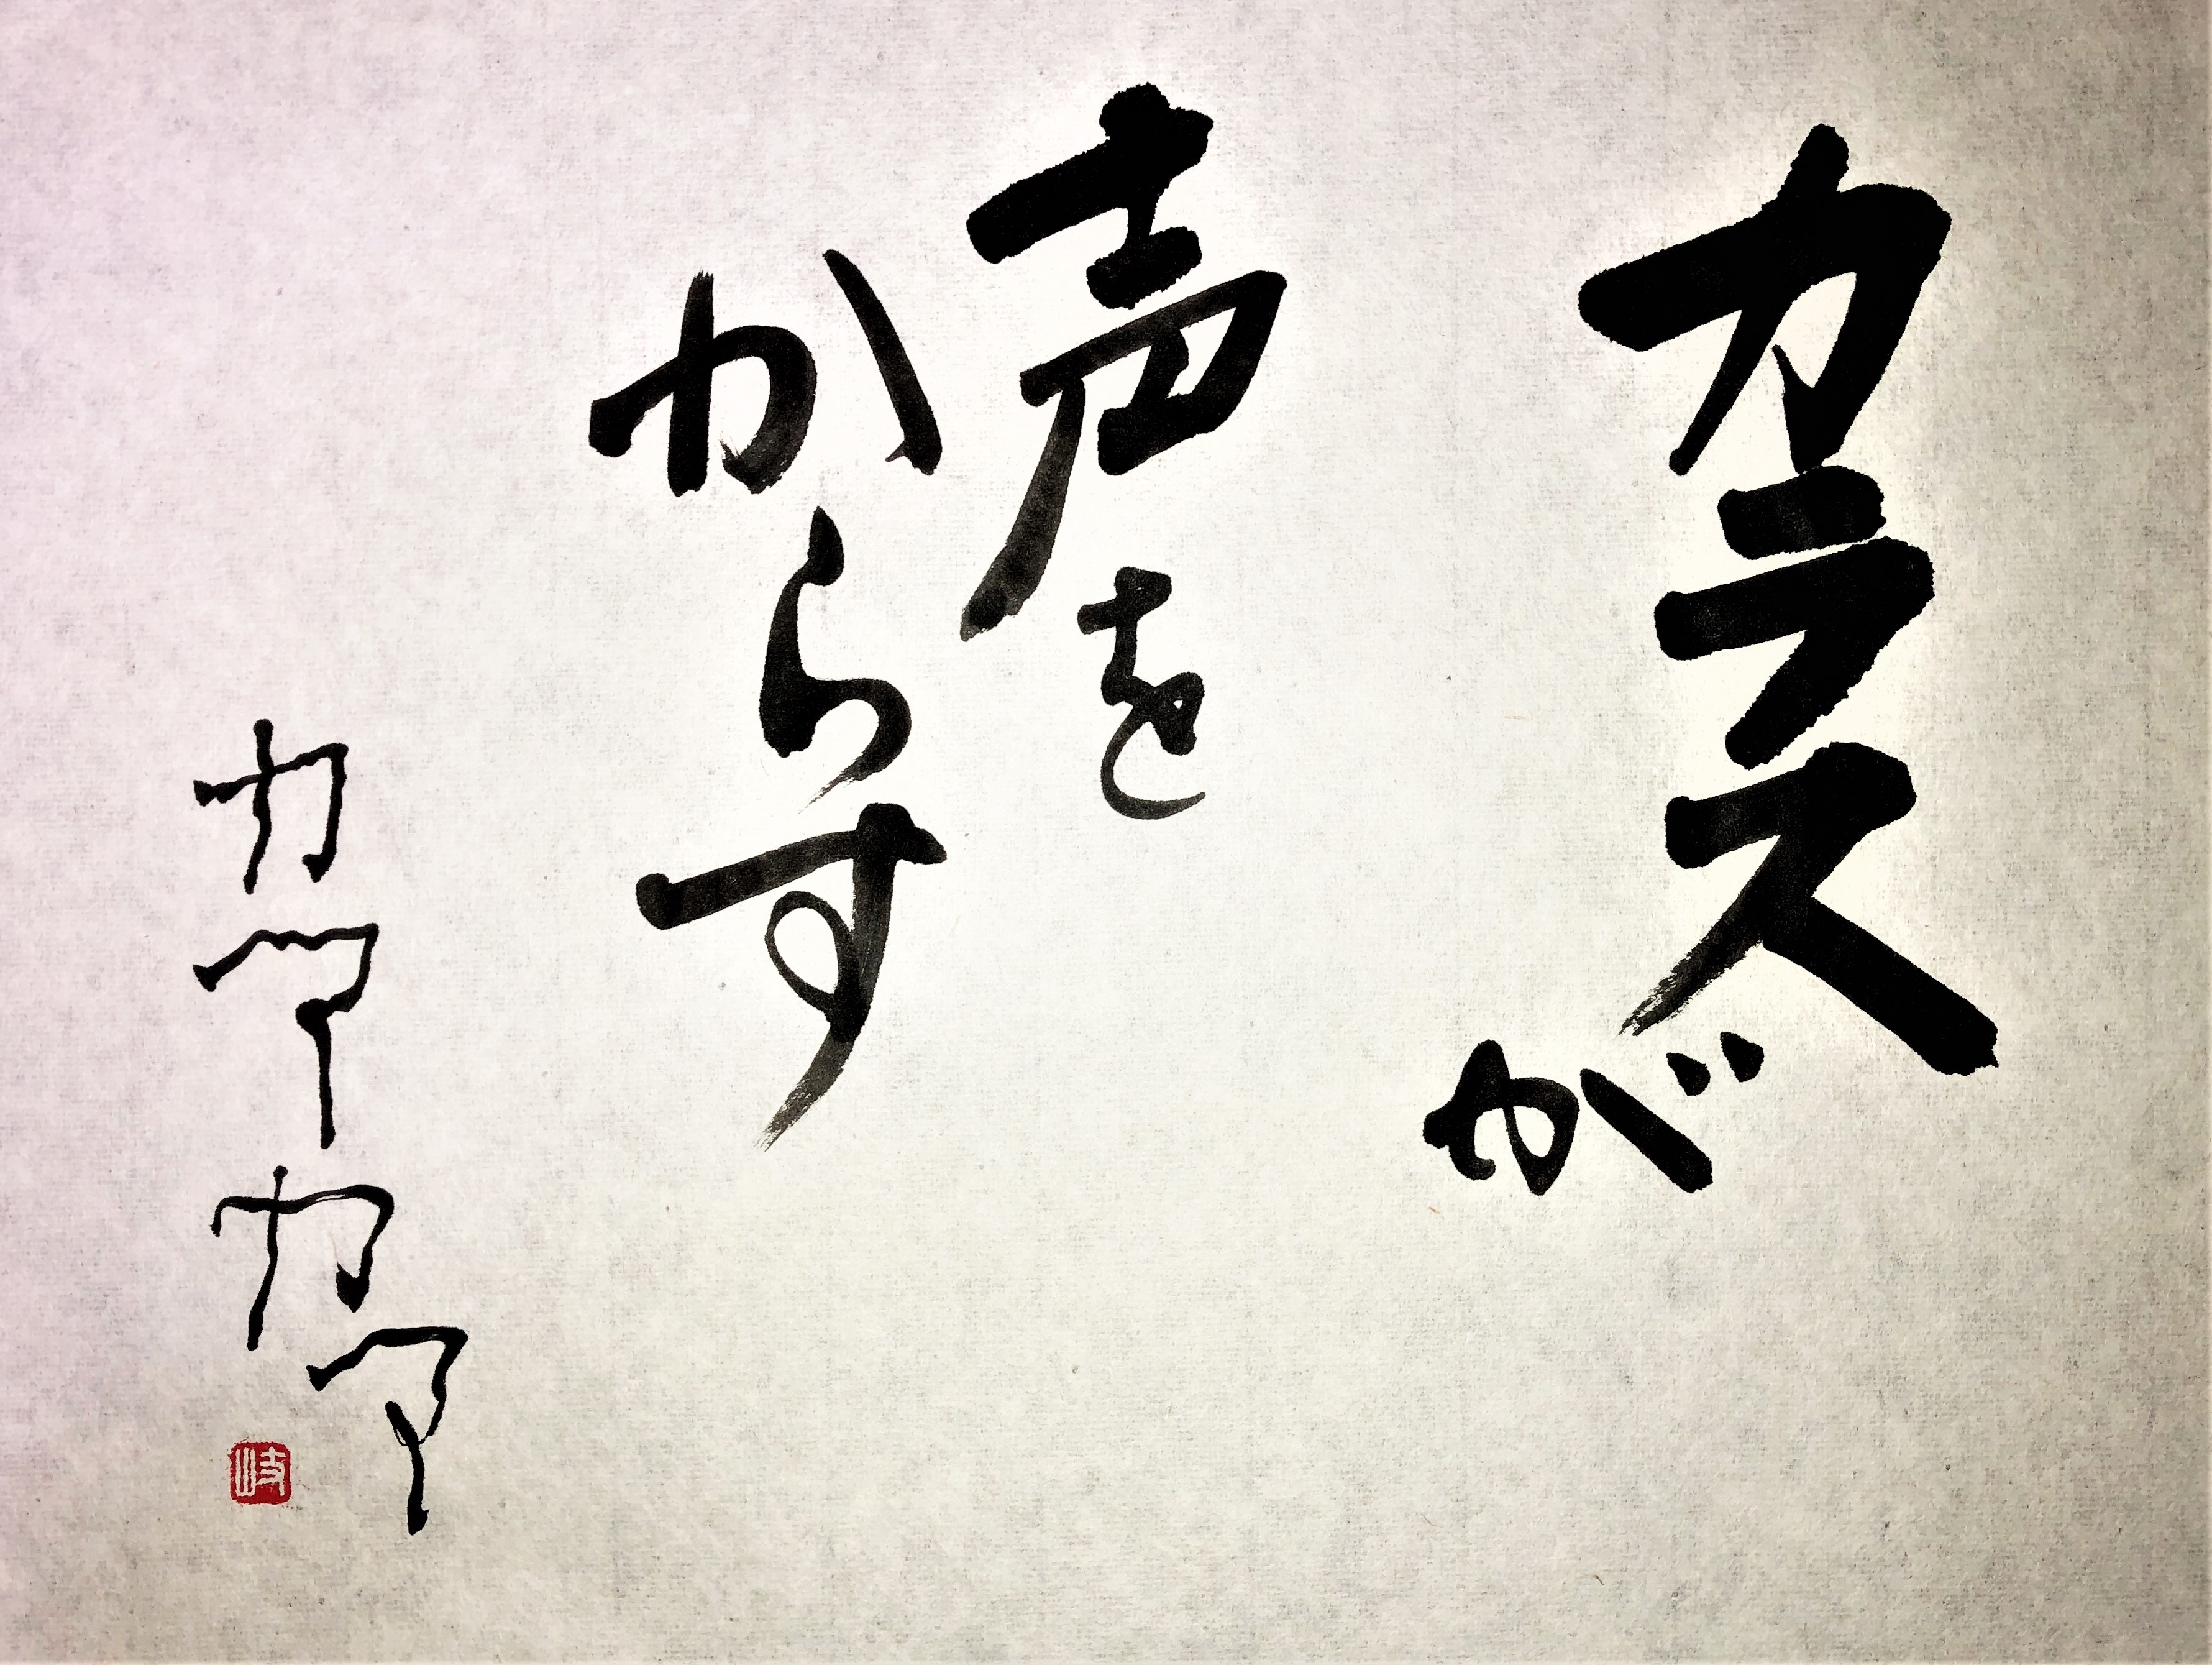 カラスが
声を
からす
カアカア
岐